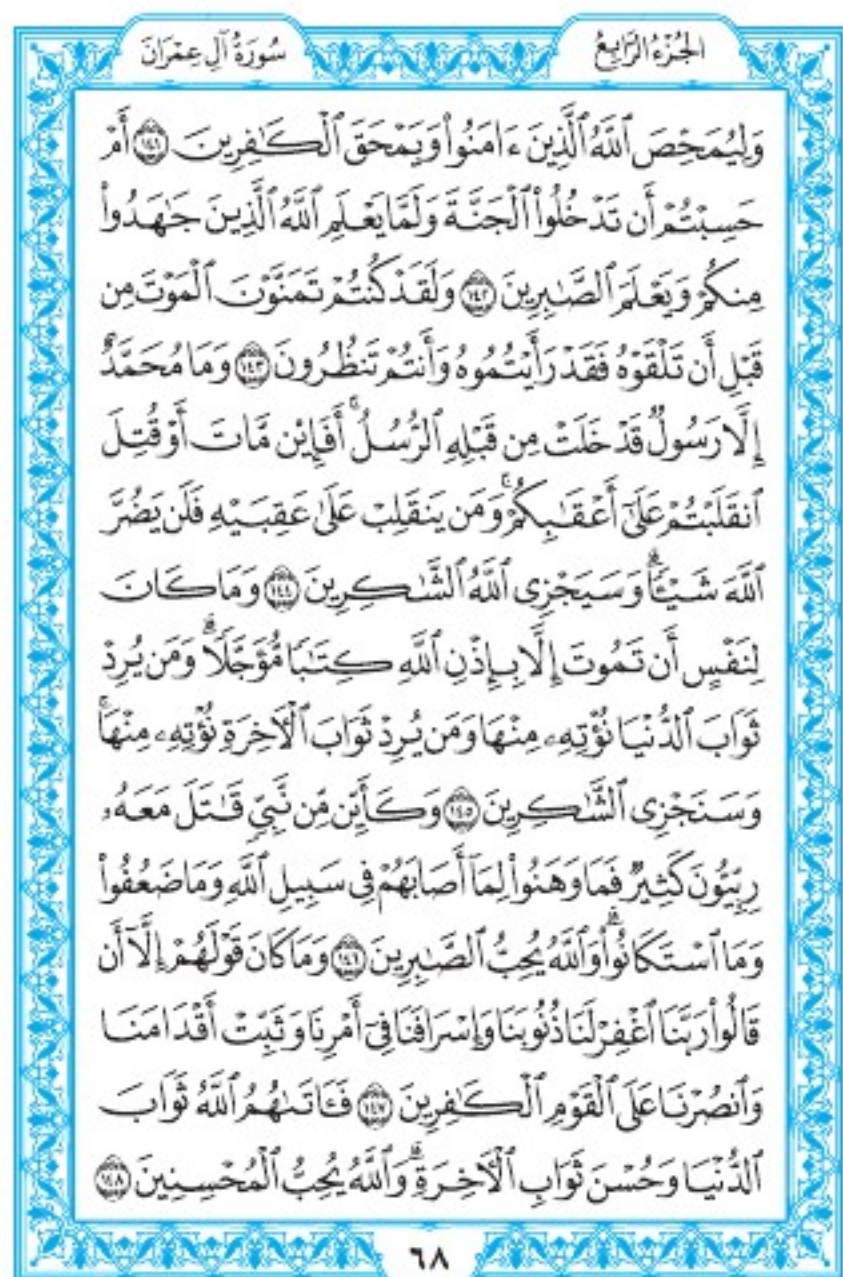 الجُزْءُ الرَّابِعُ
سُورَةُ آلِ عِمْرَانَ
وَلِيُمَحِّصَ ٱللَّهُ ٱلَّذِينَ ءَامَنُوا۟ وَيَمْحَقَ ٱلْكَٰفِرِينَ ١٤١ أَمْ
حَسِبْتُمْ أَن تَدْخُلُوا۟ ٱلْجَنَّةَ وَلَمَّا يَعْلَمِ ٱللَّهُ ٱلَّذِينَ جَٰهَدُوا۟
مِنكُمْ وَيَعْلَمَ ٱلصَّٰبِرِينَ ١٤٢ وَلَقَدْ كُنتُمْ تَمَنَّوْنَ ٱلْمَوْتَ مِن
قَبْلِ أَن تَلْقَوْهُ فَقَدْ رَأَيْتُمُوهُ وَأَنتُمْ تَنظُرُونَ ١٤٣ وَمَا مُحَمَّدٌ
إِلَّا رَسُولٌ قَدْ خَلَتْ مِن قَبْلِهِ ٱلرُّسُلُ ۚ أَفَإِي۟ن مَّاتَ أَوْ قُتِلَ
ٱنقَلَبْتُمْ عَلَىٰٓ أَعْقَٰبِكُمْ ۚ وَمَن يَنقَلِبْ عَلَىٰ عَقِبَيْهِ فَلَن يَضُرَّ
ٱللَّهَ شَيْـًٔا ۗ وَسَيَجْزِى ٱللَّهُ ٱلشَّٰكِرِينَ ١٤٤ وَمَا كَانَ
لِنَفْسٍ أَن تَمُوتَ إِلَّا بِإِذْنِ ٱللَّهِ كِتَٰبًا مُّؤَجَّلًا ۗ وَمَن يُرِدْ
ثَوَابَ ٱلدُّنْيَا نُؤْتِهِۦ مِنْهَا وَمَن يُرِدْ ثَوَابَ ٱلْءَاخِرَةِ نُؤْتِهِۦ مِنْهَا ۚ
وَسَنَجْزِى ٱلشَّٰكِرِينَ ١٤٥ وَكَأَيِّن مِّن نَّبِىٍّ قَٰتَلَ مَعَهُۥ
رِبِّيُّونَ كَثِيرٌ فَمَا وَهَنُوا۟ لِمَآ أَصَابَهُمْ فِى سَبِيلِ ٱللَّهِ وَمَا ضَعُفُوا۟
وَمَا ٱسْتَكَانُوا۟ ۗ وَٱللَّهُ يُحِبُّ ٱلصَّٰبِرِينَ ١٤٦ وَمَا كَانَ قَوْلَهُمْ إِلَّآ أَن
قَالُوا۟ رَبَّنَا ٱغْفِرْ لَنَا ذُنُوبَنَا وَإِسْرَافَنَا فِىٓ أَمْرِنَا وَثَبِّتْ أَقْدَامَنَا
وَٱنصُرْنَا عَلَى ٱلْقَوْمِ ٱلْكَٰفِرِينَ ١٤٧ فَـَٔاتَىٰهُمُ ٱللَّهُ ثَوَابَ
ٱلدُّنْيَا وَحُسْنَ ثَوَابِ ٱلْءَاخِرَةِ ۗ وَٱللَّهُ يُحِبُّ ٱلْمُحْسِنِينَ ١٤٨
٦٨